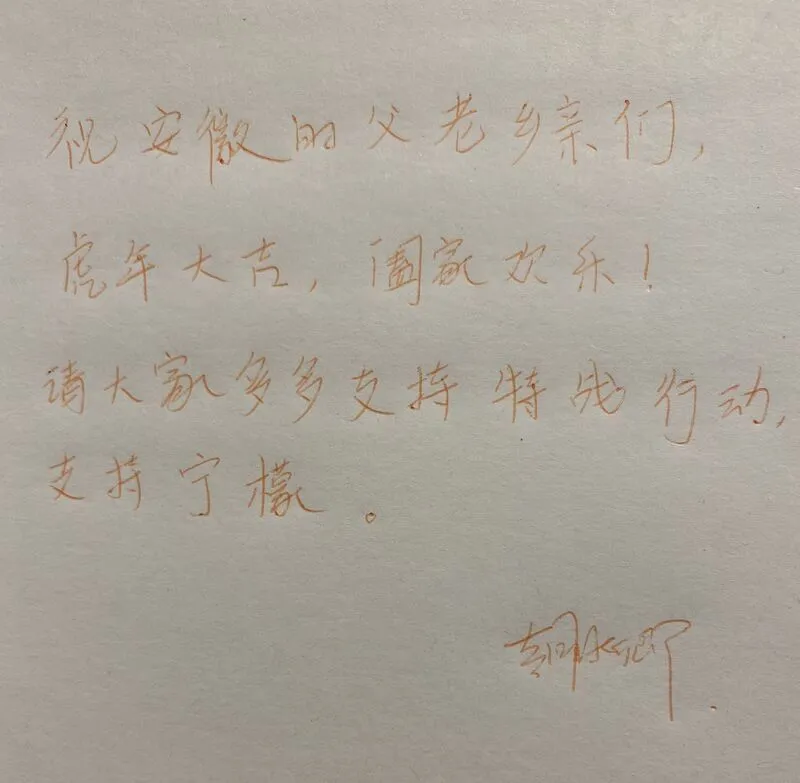 祝安徽的父老乡亲们,
虎年大吉, 阖家欢乐!
请大家多多支持特战行动,
支持宁檬。